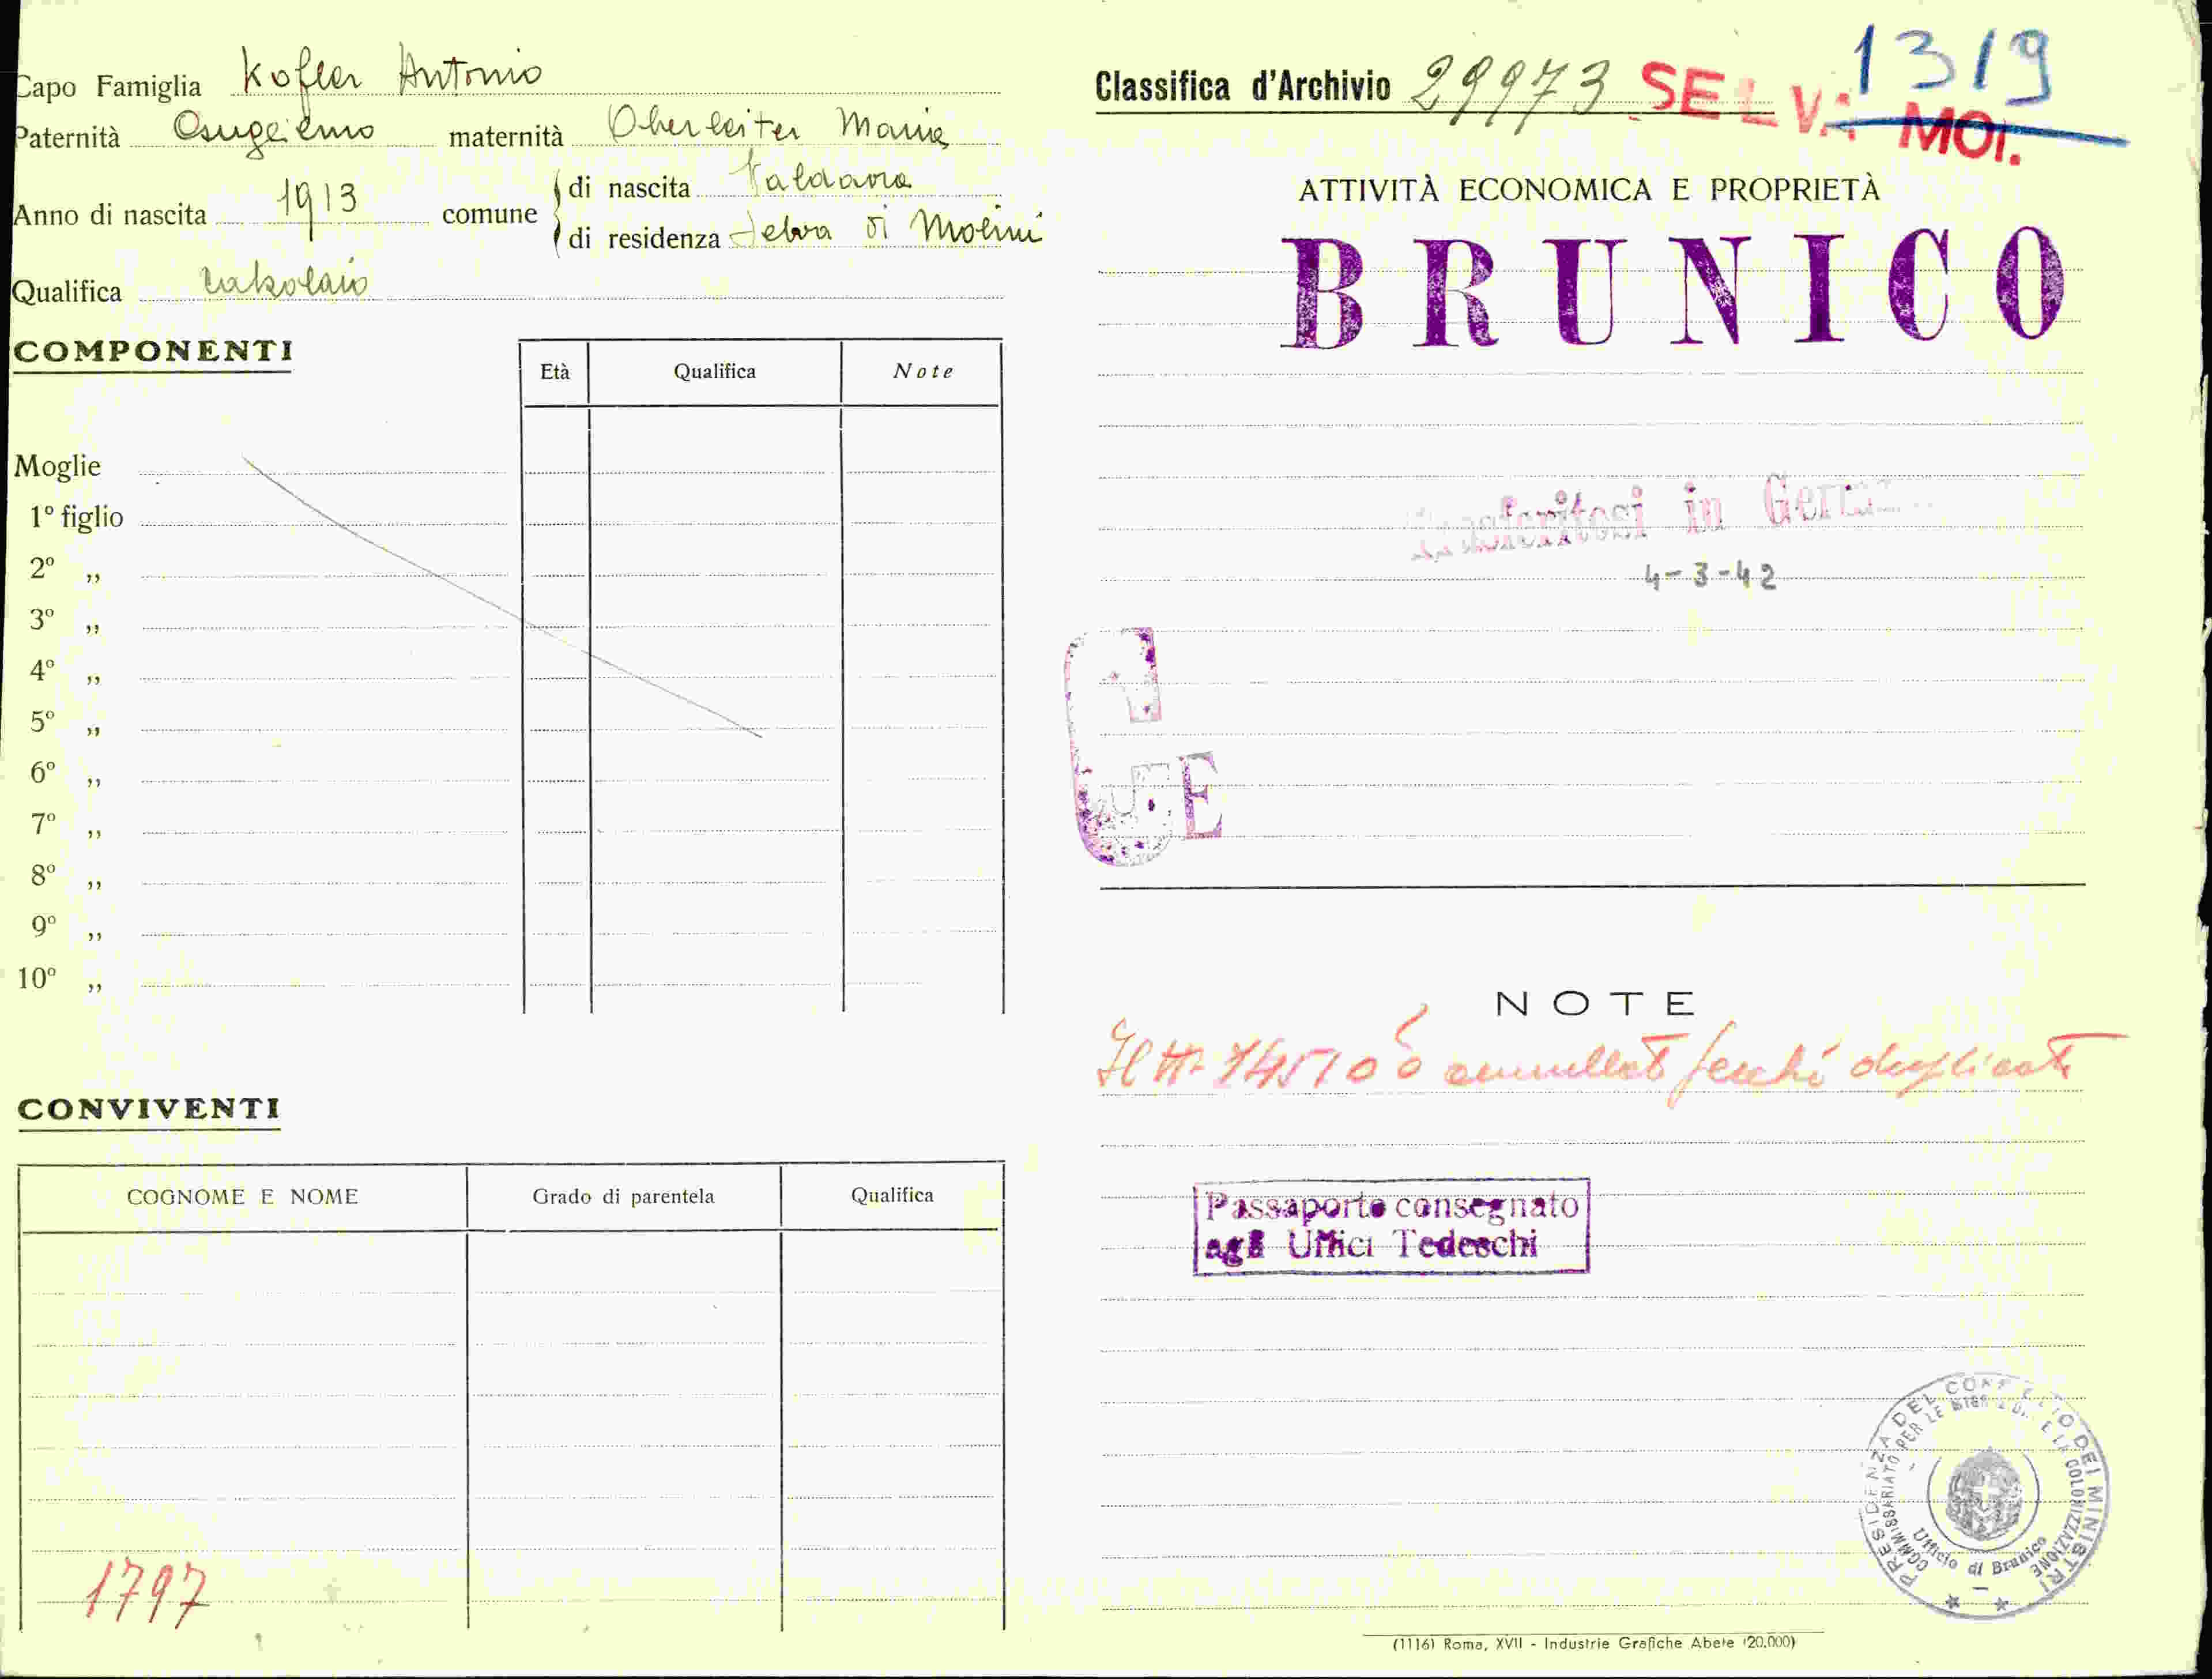 Capo Famiglia Kofler Antonio
Paternità maternità Oberleiter Maria
Anno di nascita 1913 comune di nascita Valdaora
di residenza Selva di Molini
Qualifica calzolaio
COMPONENTI
Età Qualifica Note
Moglie
1º figlio
2º „
3º „
4º „
5º „
6º „
7º „
8º „
9º „
10º „
CONVIVENTI
COGNOME E NOME Grado di parentela Qualifica
1797
Classifica d'Archivio 29973 SELV. MOI. 1319
ATTIVITÀ ECONOMICA E PROPRIETÀ
BRUNICO
in
4-3-42
E
NOTE
Il Nº 74510 è annullato perché duplicato
Passaporto consegnato
agli Uffici Tedeschi
PRESIDENZA DEL CONSIGLIO DEI MINISTRI
COMMISSARIATO PER LE E LA COLONIZZAZIONE
Ufficio di Brunico
(1116) Roma, XVII - Industrie Grafiche Abete (20.000)